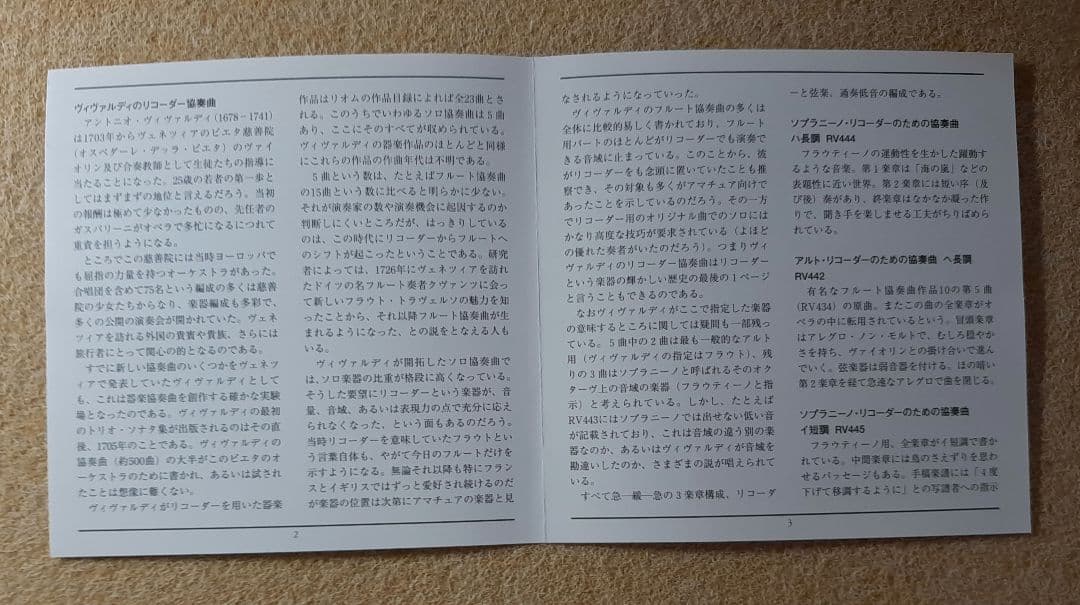 ヴィヴァルディのリコーダー協奏曲
アントニオ・ヴィヴァルディ(1678−1741)
は1703年からヴェネツィアのピエタ慈善院
(オスペダーレ・デッラ・ピエタ)のヴァイ
オリン及び合奏教師として生徒たちの指導に
当たることになった。25歳の若者の第一歩と
してはまずまずの地位と言えるだろう。当初
の報酬は極めて少なかったものの、先任者の
ガスパリーニがオペラで多忙になるにつれて
重責を担うようになる。
ところでこの慈善院には当時ヨーロッパで
も屈指の力量を持つオーケストラがあった。
合唱団を含めて75名という編成の多くは慈善
院の少女たちからなり、楽器編成も多彩で、
多くの公開の演奏会が開かれていた。ヴェネ
ツィアを訪れる外国の貴賓や貴族、さらには
旅行者にとって関心の的となるのである。
すでに新しい協奏曲のいくつかをヴェネツ
ィアで発表していたヴィヴァルディとして
も、これは器楽協奏曲を創作する確かな実験
場となったのである。ヴィヴァルディの最初
のトリオ・ソナタ集が出版されるのはその直
後、1705年のことである。ヴィヴァルディの
協奏曲(約500曲)の大半がこのピエタのオ
ーケストラのために書かれ、あるいは試され
たことは想像に難くない。
ヴィヴァルディがリコーダーを用いた器楽
作品はリオムの作品目録によれば全23曲とさ
れる。このうちでいわゆるソロ協奏曲は5曲
あり、ここにそのすべてが収められている。
ヴィヴァルディの器楽作品のほとんどと同様
にこれらの作品の作曲年代は不明である。
5曲という数は、たとえばフルート協奏曲
の15曲という数に比べると明らかに少ない。
それが演奏家の数や演奏機会に起因するのか
判断しにくいところだが、はっきりしている
のは、この時代にリコーダーからフルートへ
のシフトが起こったということである。研究
者によっては、1726年にヴェネツィアを訪れ
たドイツの名フルート奏者クヴァンツに会っ
て新しいフラウト・トラヴェルソの魅力を知
ったことから、それ以降フルート協奏曲が生
まれるようになった、との説をとなえる人も
いる。
ヴィヴァルディが開拓したソロ協奏曲で
は、ソロ楽器の比重が格段に高くなっている。
そうした要望にリコーダーという楽器が、音
量、音域、あるいは表現力の点で充分に応え
られなくなった、という面もあるのだろう。
当時リコーダーを意味していたフラウトとい
う言葉自体も、やがて今日のフルートだけを
示すようになる。無論それ以降も特にフラン
スとイギリスではずっと愛好され続けるのだ
が楽器の位置は次第にアマチュアの楽器と見
2
なされるようになっていった。
ヴィヴァルディのフルート協奏曲の多くは
全体に比較的易しく書かれており、フルート
用パートのほとんどがリコーダーでも演奏で
きる音域に止まっている。このことから、彼
がリコーダーをも念頭に置いていたことも推
察でき、その対象も多くがアマチュア向けで
あったことを示しているのだろう。その一方
でリコーダー用のオリジナル曲でのソロには
かなり高度な技巧が要求されている(よほど
の優れた奏者がいたのだろう)。つまりヴィ
ヴァルディのリコーダー協奏曲はリコーダー
という楽器の輝かしい歴史の最後の1ページ
と言うこともできるのである。
なおヴィヴァルディがここで指定した楽器
の意味するところに関しては疑問も一部残っ
ている。5曲中の2曲は最も一般的なアルト
用(ヴィヴァルディの指定はフラウト)、残
りの3曲はソプラニーノと呼ばれるそのオク
ターヴ上の音域の楽器(フラウティーノと指
示)と考えられている。しかし、たとえば
RV443にはソプラニーノでは出せない低い音
が記載されており、これは音域の違う別の楽
器なのか、あるいはヴィヴァルディが音域を
勘違いしたのか、さまざまの説が唱えられて
いる。
すべて急―緩―急の3楽章構成、リコーダ
ーと弦楽、通奏低音の編成である。
ソプラニーノ・リコーダーのための協奏曲
ハ長調 RV444
フラウティーノの運動性を生かした躍動す
るような音楽。第1楽章は「海の嵐」などの
表題性に近い世界。第2楽章には短い序(及
び後)奏があり、終楽章はなかなか凝った作
りで、聞き手を楽しませる工夫がちりばめら
れている。
アルト・リコーダーのための協奏曲 ヘ長調
RV442
有名なフルート協奏曲作品10の第5曲
(RV434)の原曲。またこの曲の全楽章がオ
ペラの中に転用されているという。冒頭楽章
はアレグロ・ノン・モルトで、むしろ穏やか
さを持ち、ヴァイオリンとの掛け合いで進ん
でいく。弦楽器は弱音器を付ける。ほの暗い
第2楽章を経て急速なアレグロで曲を閉じる。
ソプラニーノ・リコーダーのための協奏曲
イ短調 RV445
フラウティーノ用、全楽章がイ短調で書か
れている。中間楽章には鳥のさえずりを思わ
せるパッセージもある。手稿楽譜には「4度
下げて移調するように」との写譜者への指示
3